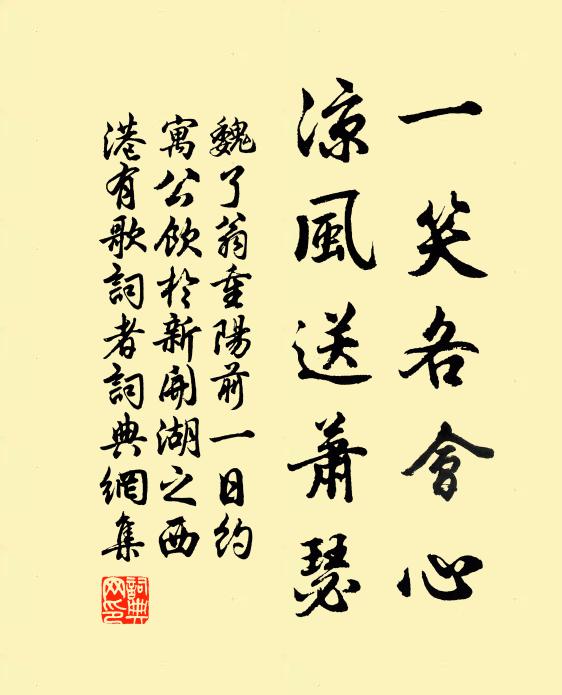 一笑各會心
涼風送蕭瑟
魏了翁重陽前一日約
寓公飲於新開湖之西
港有歌詞者詞典網集
詞典網印